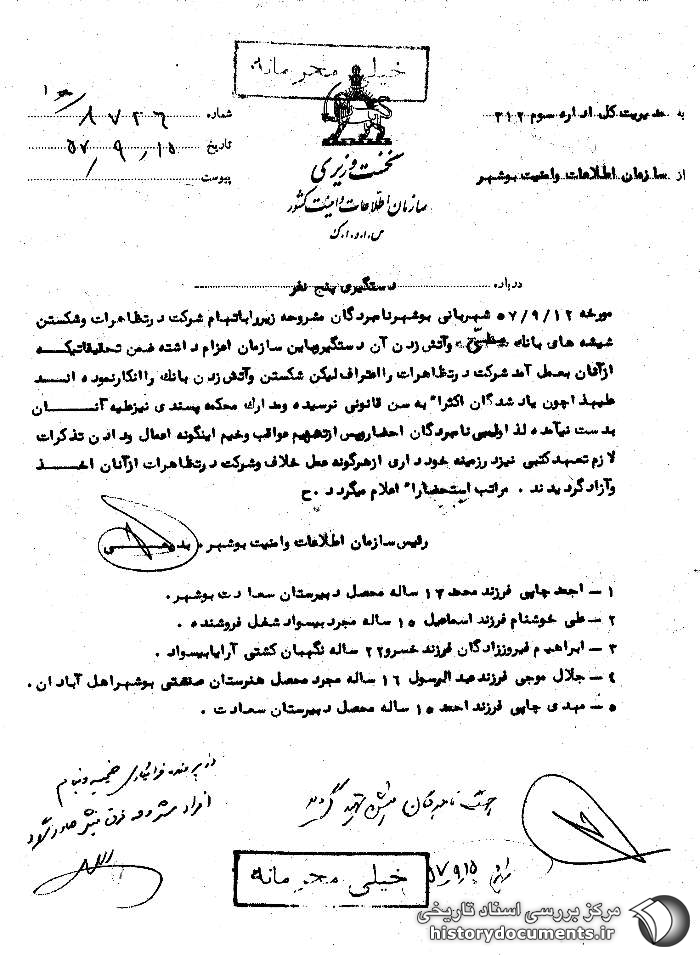 خیلی محرمانه
به مدیریت کل اداره سوم ۳۱۲
از سازمان اطلاعات وامنیت بوشهر
شماره
تاریخ ۵۷/۹/۱۵
پیوست
نخست وزیری
سازمان اطلاعات و امنیت کشور
س.ا.و.ا.ک
درباره دستگیری پنج نفر
مورخه ۵۷/۹/۱۲ شهربانی بوشهر نامبردگان مشروحه زیر را باتهام شرکت در تظاهرات وشکستن
شیشه های بانک وآتش زدن آن دستگیر و باین سازمان اعزام داشته ضمن تحقیقاتیکه
از آنان بعمل آمد شرکت در تظاهرات را اعتراف لیکن شکستن وآتش زدن بانک را انکار نموده انسد
علیهذا چون یاد شدگان اکثرا" به سن قانونی نرسیده ومدارک محکمه پسندی نیز علیه آنان
بدست نیآمده لذا نامبردگان احضار وپس از تفهیم عواقب وخیم اینگونه اعمال ودادن تذکرات
لازم تعهد کتبی نیز در زمینه خود داری از هرگونه عمل خلاف وشرکت در تظاهرات از آنان اخذ
وآزاد گردیدند . مراتب استحضارا" اعلام میگردد .ح
رئیس سازمان اطلاعات وامنیت بوشهر.
۱ – احمد چاهی فرزند محمد ۱۷ ساله محصل دبیرستان سعادت بوشهر.
۲ – علی خوشنام فرزند اسماعیل ۱۵ ساله مجرد بیسواد شغل فروشنده .
۳ – ابراهیم فیروززادگان فرزند خسرو ۲۲ ساله نگهبان کشتی آرایا بیسواد .
۴ – جلال موجی فرزند عبدالرسول ۱۶ ساله مجرد محصل هنرستان صنعتی بوشهر اهل آبادان.
۵ – مهدی چاهی فرزند احمد ۱۵ ساله محصل دبیرستان سعادت .
جهت نامبردگان فیش تهیه گردید
۵۷/۹/۱۵
در پرونده ضمیمه و بنام
افراد مشروحه فوق فیش صادر شود
خیلی محرمانه
مرکز بررسی اسناد تاریخی
historydocuments.ir